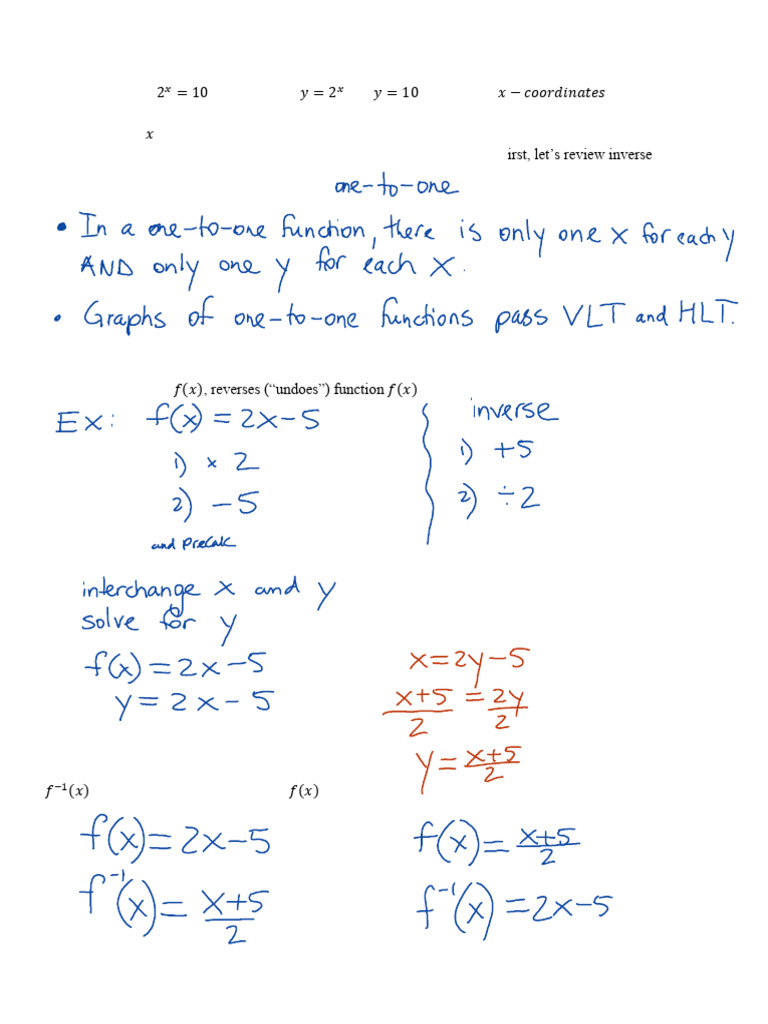 2ˣ = 10 y = 2ˣ y = 10 x − coordinates
x
irst, let's review inverse
one-to-one
• In a one-to-one function, there is only one x for each y
AND only one y for each x.
• Graphs of one-to-one functions pass VLT and HLT.
f(x), reverses ("undoes") function f(x)
Ex: f(x) = 2x-5
1) × 2
2) -5
inverse
1) +5
2) ÷2
and PreCalc
interchange x and y
solve for y
f(x) = 2x-5
y = 2x - 5
x = 2y-5
x+5/2 = 2y/2
y = x+5/2
f⁻¹(x) f(x)
f(x) = 2x-5
f⁻¹(x) = x+5/2
f(x) = x+5/2
f⁻¹(x) = 2x-5